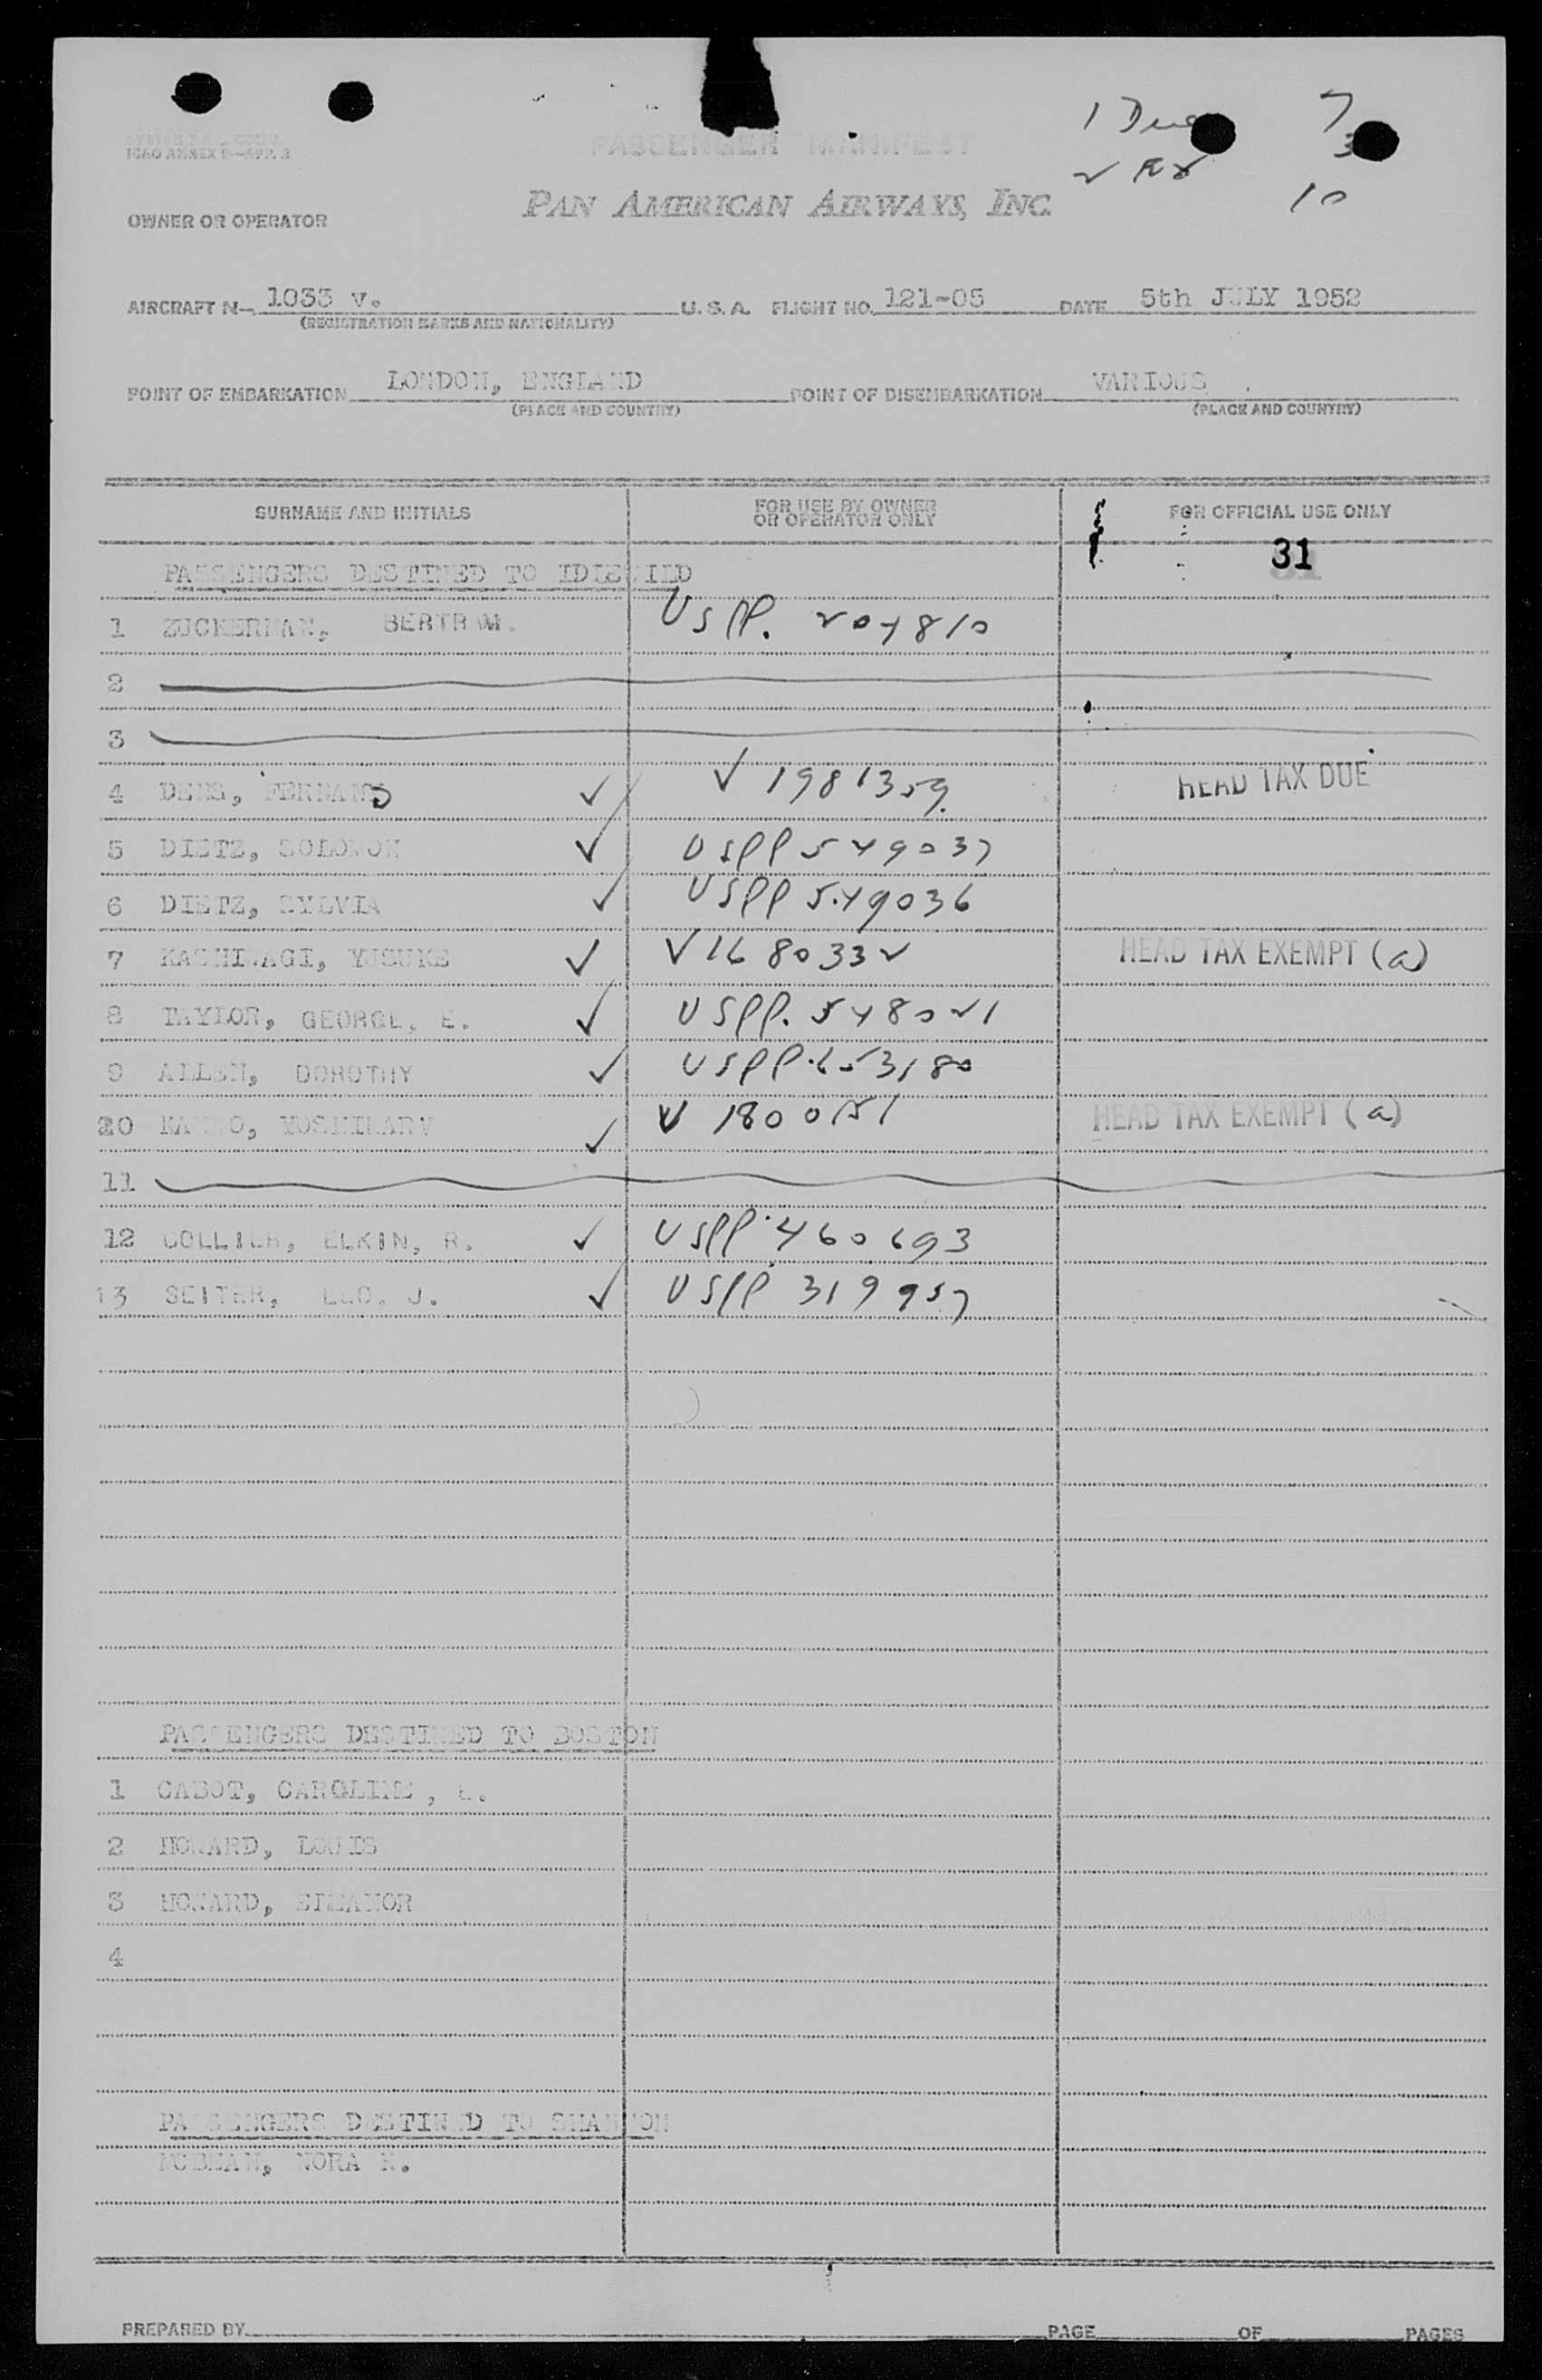 ICAO ANNEX 9—APP. 3
PASSENGER MANIFEST
1 Due 7
3
2 Ex
10
PAN AMERICAN AIRWAYS, INC.
OWNER OR OPERATOR
AIRCRAFT N— 1033 v. U. S. A. FLIGHT NO. 121-05 DATE 5th JULY 1952
(REGISTRATION MARKS AND NATIONALITY)
POINT OF EMBARKATION LONDON, ENGLAND POINT OF DISEMBARKATION VARIOUS
(PLACE AND COUNTRY) (PLACE AND COUNTRY)
SURNAME AND INITIALS FOR USE BY OWNER OR OPERATOR ONLY FOR OFFICIAL USE ONLY
31
PASSENGERS DESTINED TO IDLEWILD
1 ZUCKERMAN, BERTRAM. USPP. 204810
2
3
4 DENS, FERNAND ✓ V 1981359 HEAD TAX DUE
5 DIETZ, SOLOMON ✓ USPP 549037
6 DIETZ, SYLVIA ✓ USPP 549036
7 KASHIWAGI, YUSUKE ✓ V 1680332 HEAD TAX EXEMPT (a)
8 TAYLOR, GEORGE, E. ✓ USPP. 548021
9 ALLEN, DOROTHY ✓ USPP. 653180
20 YOSHIHARU ✓ V 1800151 HEAD TAX EXEMPT (a)
11
12 COLLIER, ELKIN, R. ✓ USPP 460693
13 SEITER, LEO. J. ✓ USPP 319957
PASSENGERS DESTINED TO BOSTON
1 CABOT, CAROLINE,
2 HOWARD, LOUIS
3 HOWARD, ELEANOR
4
PASSENGERS DESTINED TO SHANNON
MCBEAN, NORA K.
PREPARED BY PAGE OF PAGES